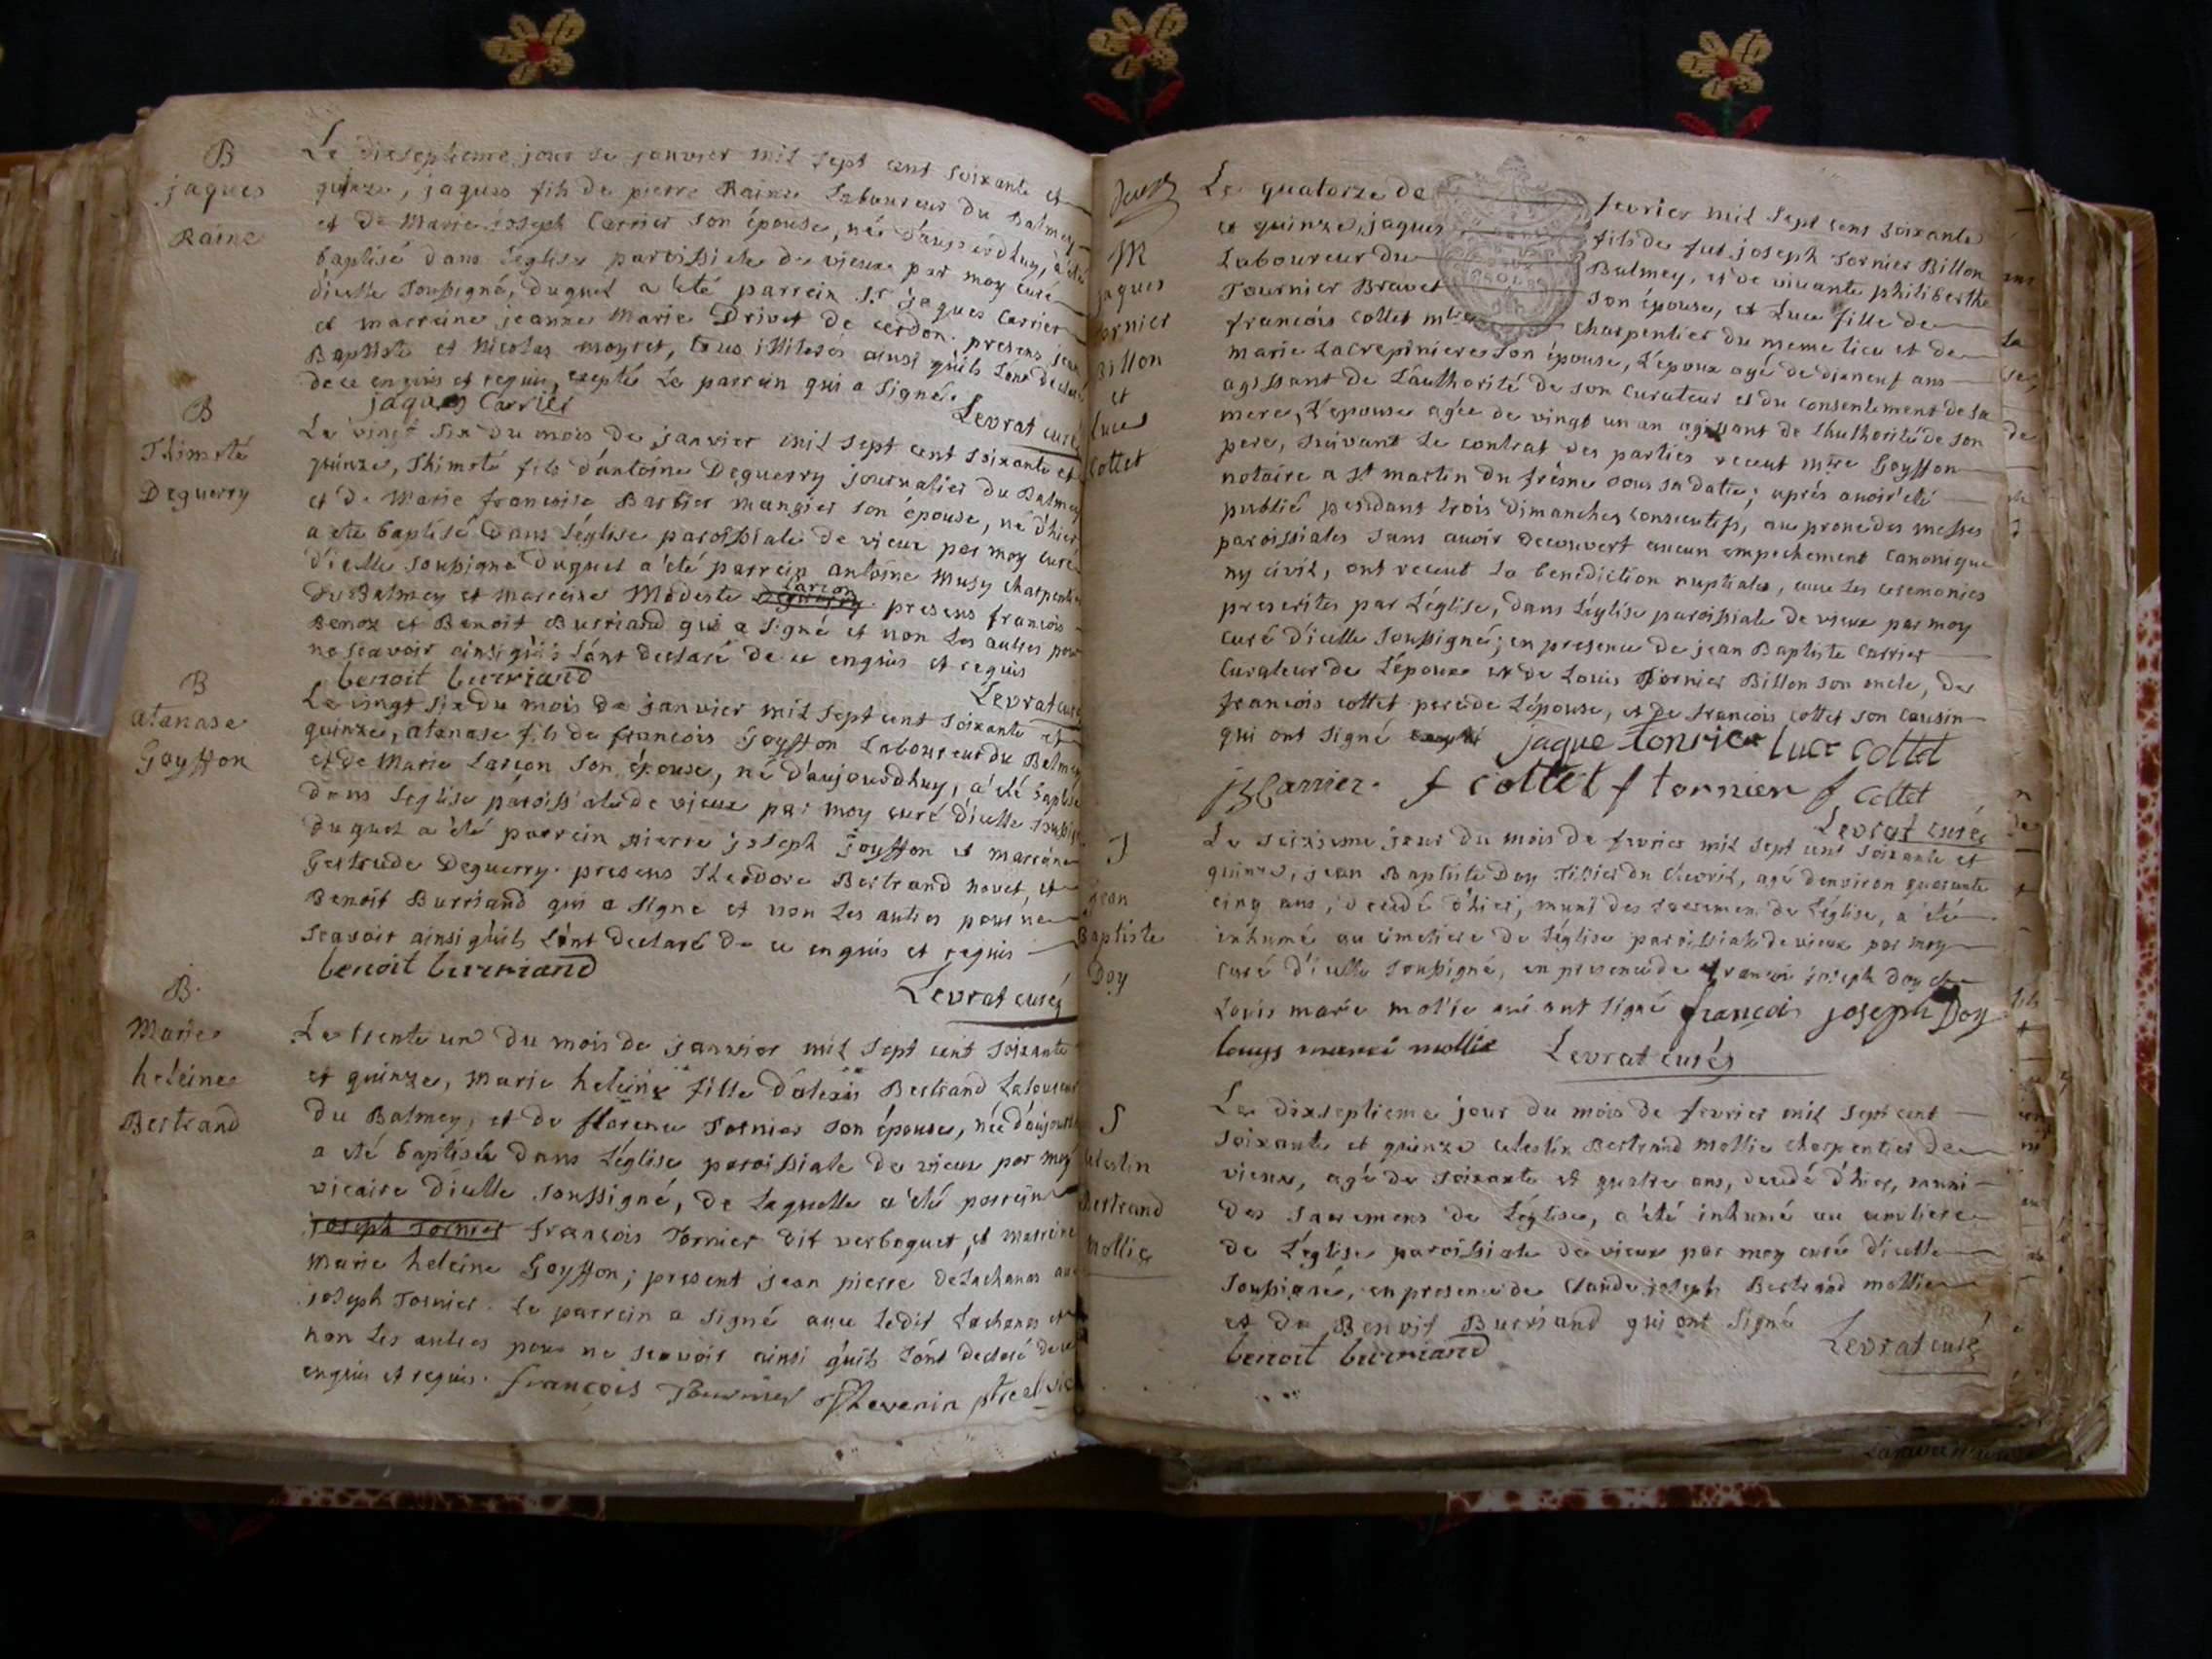 B
jaques
Raine
Le dixseptieme jour de janvier mil sept cent soixante et
quinze, jaques fils de pierre Raine Laboureur du Balmey
et de Marie joseph Carrier son épouse, né d'aujourdhuy, a été
baptisé dans l'eglise paroissiale de vieux par moy curé
d'icelle soussigné, duquel a été parrein Sr jaques Carrier
et marreine jeanne Marie Drivet de cerdon. presens jean
Baptiste et Nicolas moyret, tous illiterés ainsi qu'ils l'ont declaré
de ce enquis et requis, exepté Le parrein qui a signé.
jaques Carrier
Levrat curé
B
Thimoté
Deguerry
Le vingt six du mois de janvier mil sept cent soixante et
quinze, Thimoté fils d'antoine Deguerry journalier du Balmey
et de Marie francoise Barbier mangier son épouse, né d'hier
a eté baptisé dans l'église paroissiale de vieux par moy curé
d'icelle soussigné duquel a été parrein antoine musy charpentier
du Balmey et marreine Modeste Larcon presens francois
Benox et Benoit Burriand qui a signé et non Les autres pour
ne scavoir ainsi qu'ils l'ont declaré de ce enquis et requis
benoit burriand
Levrat curé
B
atanase
Goyffon
Le vingt six du mois de janvier mil sept cent soixante et
quinze, atanase fils de francois Goyffon Laboureur du Balmey
et de Marie Larçon son épouse, né d'aujourdhuy, a été baptisé
dans l'eglise paroissiale de vieux par moy curé d'icelle soussigné
duquel a été parrein pierre joseph Goyffon et marreine
Gertrude Deguerry. presens Theodore Bertrand novet, et
Benoit Burriand qui a signé et non Les autres pour ne
scavoir ainsi qu'ils l'ont declaré de ce enquis et requis
benoit burriand
Levrat curé
B.
Marie
heleine
Bertrand
Le trente un du mois de janvier mil sept cent soixante
et quinze, Marie heleine fille d'alexis Bertrand Laboureur
du Balmey, et de florence Tornier son épouse, née d'aujourdhuy
a eté baptisée dans L'église paroissiale de vieux par moy
vicaire d'icelle soussigné, de Laquelle a été parrein
joseph Tornier francois Tornier dit verboquet, et marreine
Marie heleine Goyffon; present jean pierre delachanas avec
joseph Tornier. Le parrein a signé avec Ledit Lachanas et
non Les autres pour ne scavoir ainsi qu'ils l'ont declaré de ce
enquis et requis. françois Tournier Thevenin ptre et vic
M
jaques
ornier
Billon
et
Luce
Collet
Le quatorze de fevrier mil sept cent soixante
et quinze, jaques fils de fut joseph Tornier Billon
Laboureur du Balmey, et de vivante philiberthe
Tournier Bravet son épouse, et Luce fille de
francois Collet mtre charpentier du meme lieu et de
marie Lacrepiniere son épouse, L'époux agé de dixneuf ans
agissant de L'authorité de son curateur et du consentement de sa
mere, L'epouse agée de vingt un an agissant de l'authorité de son
pere, suivant Le contrat des parties receut mtre Goyffon
notaire a St martin du frêne sous sa datte; aprés avoir été
publié pendant trois dimanches consecutifs, au prone des messes
paroissiales sans avoir decouvert aucun empechement canonique
ny civil, ont receut La benediction nuptiale, avec Les ceremonies
prescrites par L'église, dans L'église paroissiale de vieux par moy
curé d'icelle soussigné; en presence de jean Baptiste Carrier
curateur de L'époux et de Louis Tornier Billon son oncle, de
francois collet pere de L'épouse, et de francois collet son cousin
qui ont signé jaque tonrier Luce collet
jB Carrier. f collet f tornier f collet
Levrat curé
J
jean
Baptiste
Doy
Le seizieme jour du mois de fevrier mil sept cent soixante et
quinze, jean Baptiste Doy Tissier du Chevril, agé d'environ quarante
cinq ans, decedé d'hier, muni des sacremens de L'église, a été
inhumé au cimetiere de L'église paroissiale de vieux par moy
curé d'icelle soussigné, en presence de francois joseph Doy et
Louis marie mollie qui ont signé françois joseph Doy
louys marie mollie Levrat curé
S
celestin
Bertrand
Mollie
Le dixseptieme jour du mois de fevrier mil sept cent
soixante et quinze celestin Bertrand mollie charpentier de
vieux, agé de soixante et quatre ans, decedé d'hier, muni
des sacremens de L'église, a été inhumé au cimetiere
de L'église paroissiale de vieux par moy curé d'icelle
soussigné, en presence de Claude joseph Bertrand mollie
et de Benoit Burriand qui ont signé
benoit burriand
Levrat curé